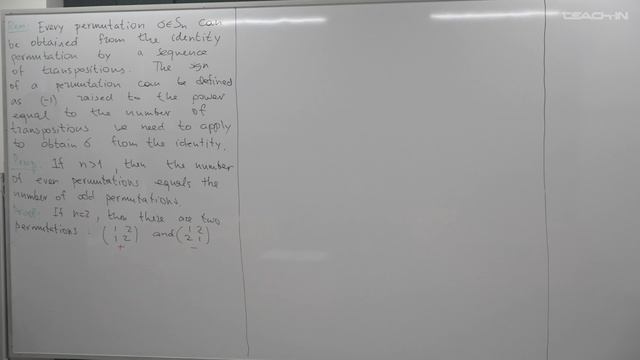 Rem: Every permutation σ∈Sn can
be obtained from the identity
permutation by a sequence
of transpositions. The sign
of a permutation can be defined
as (-1) raised to the power
equal to the number of
transpositions we need to apply
to obtain σ from the identity.
Prop: If n>1, then the number
of even permutations equals the
number of odd permutations.
Proof: If n=2, then there are two
permutations: (1 2 and (1 2
1 2) 2 1)
+ -
TEACH-IN